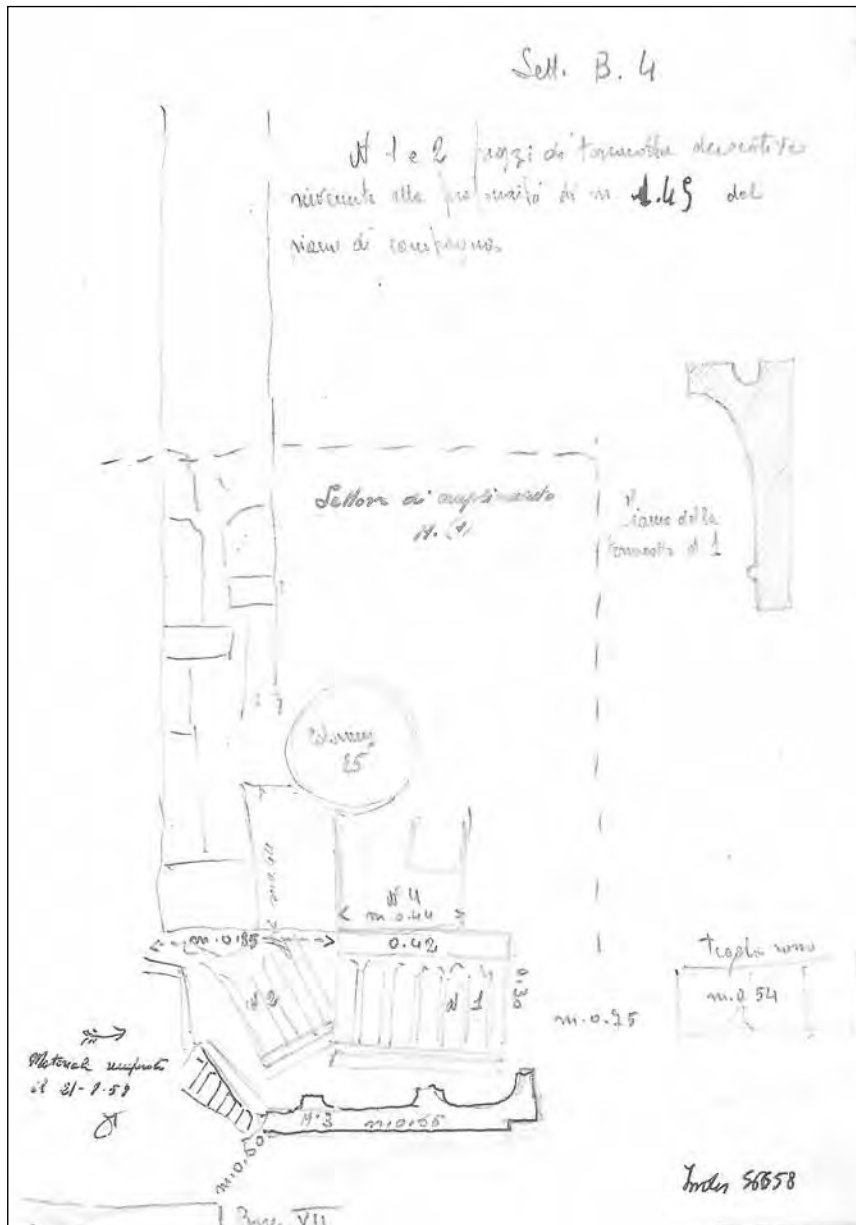 Sett. B. 4
N 1 e 2 pezzi di terracotta decorativa
rinvenute alla profondità di m 1.45 dal
piano di campagna
Settore di ampliamento
N.
della
terracotta N 1
Colonna
25
N 4
m. 0.44
m. 0.85
0.42
N 2
N 1
0.30
m. 0.25
Tegola
m. 0 54
Materiale
il 21-8-58
N. 3 m. 0.55
m. 0.
Index 56658
VII